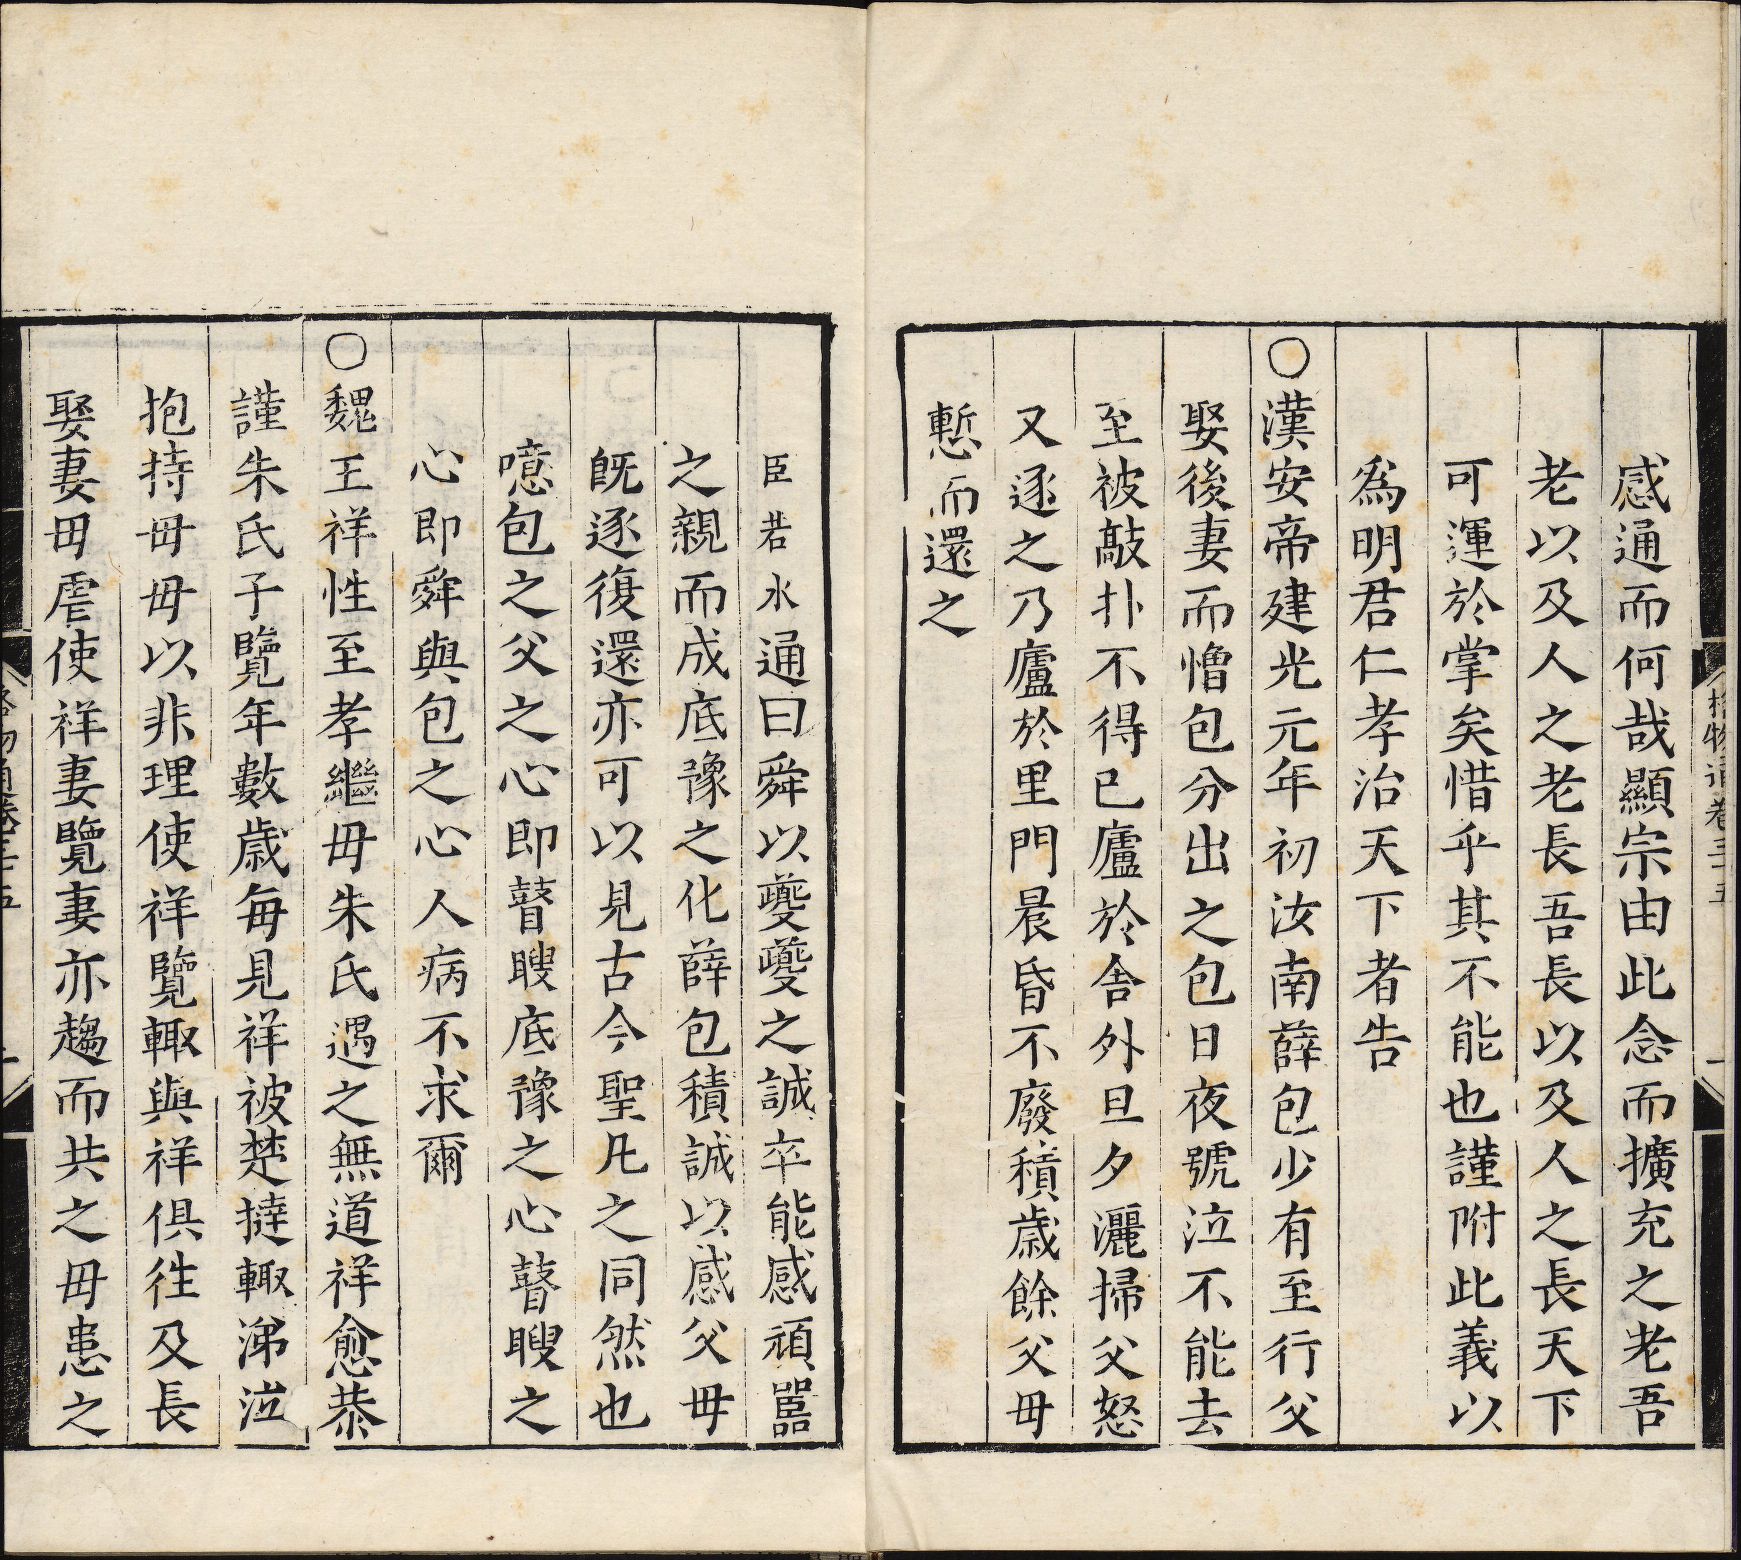 感通而何哉顯宗由此念而擴充之老吾
老以及人之老長吾長以及人之長天下
可運於掌矣惜乎其不能也謹附此義以
爲明君仁孝治天下者告
○漢安帝建光元年初汝南薛包少有至行父
娶後妻而憎包分出之包日夜號泣不能去
至被敲扑不得已廬於舍外旦夕灑掃父怒
又逐之乃廬於里門晨昏不廢積歲餘父母
慙而還之
臣若水通曰舜以夔夔之誠卒能感頑嚚
之親而成底豫之化薛包積誠以感父毋
旣逐復還亦可以見古今聖凡之同然也
噫包之父之心即瞽瞍底豫之心瞽瞍之
心即舜與包之心人病不求爾
○魏王祥性至孝繼毋朱氏遇之無道祥愈恭
謹朱氏子覽年數歲每見祥被楚撻輙涕泣
抱持毋毋以非理使祥覽輙與祥俱徃及長
娶妻毋虐使祥妻覽妻亦趨而共之毋患之
格物通卷三十五